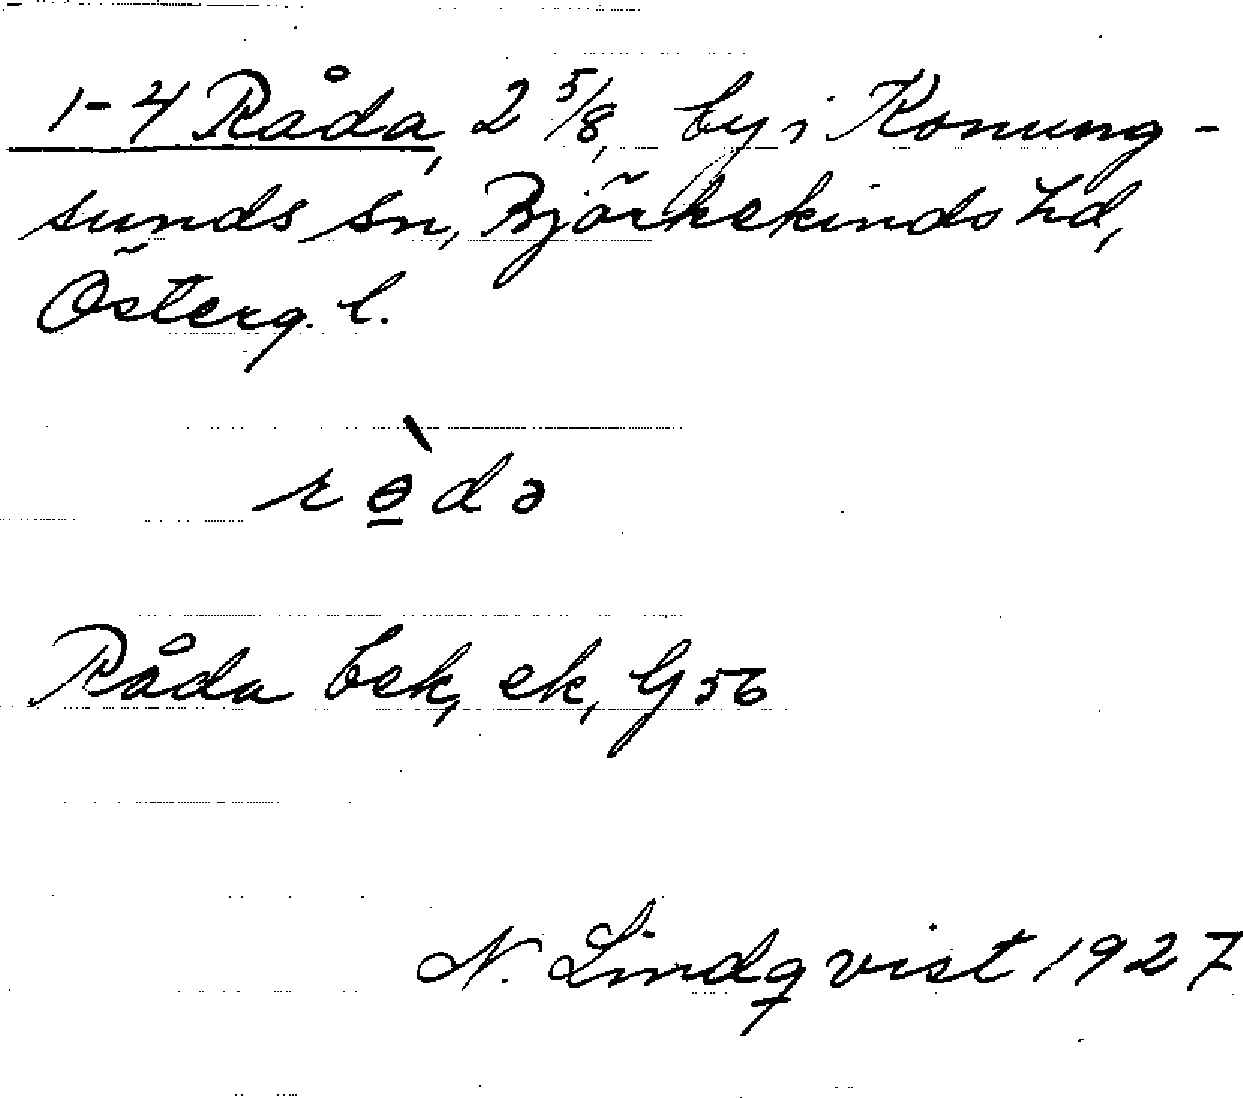 1-4 Råda, 2 5/8, by i Konung-
sunds sn, Björkekinds hd,
Österg. l.
rɵ̲̀də
Råda bek, ek, G 56
N. Lindqvist 1927